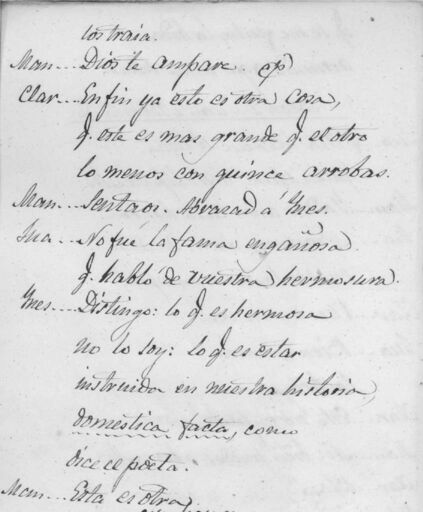 los traia.
Man... Dios te ampare
Clar... En fin ya esto es otra cosa,
q. este es mas grande q. el otro
lo menos con quince arrobas.
Man... Sentaos. Abrazad á Ynes.
Jua... No fué la fama engañosa
q. habló de vuestra hermosura.
Ynes... Distingo: lo q. es hermosa
no lo soy: lo q. es estar
instruida en nuestra historia,
domestica facta, como
dice el poeta.
Man... Esta es otra.